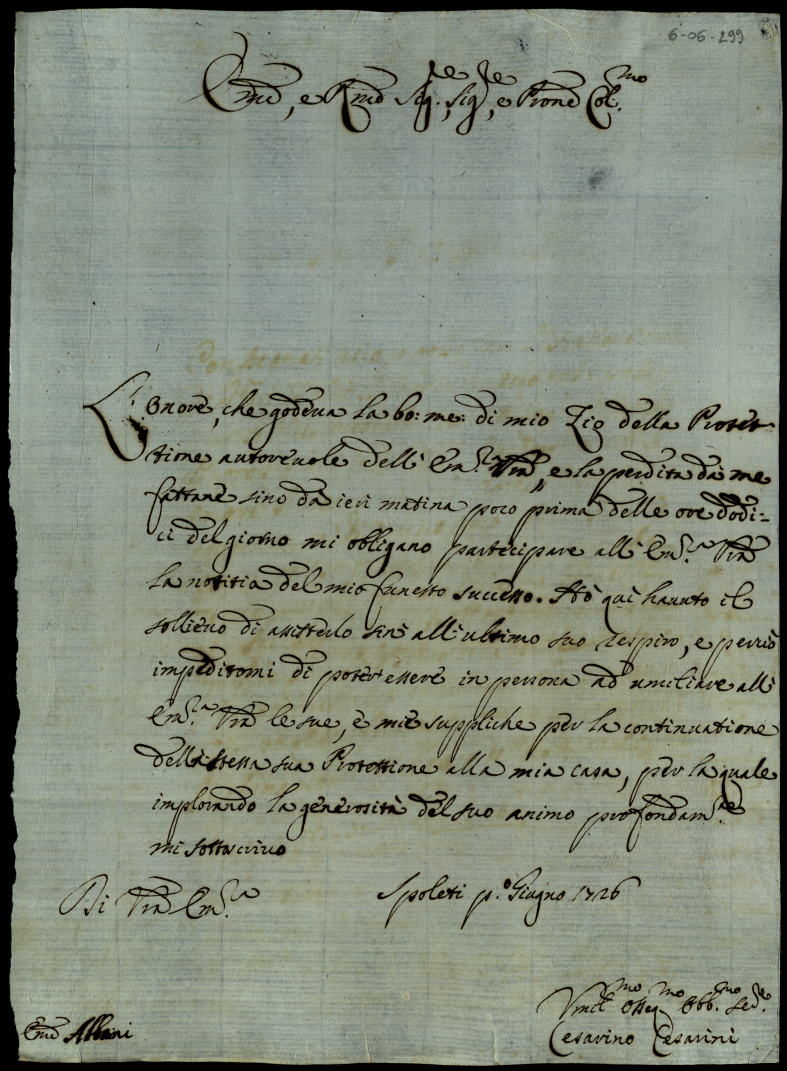 6-06-299
Em̃o, e Rm̃o Sig.re, Sig.re, e Prone Col.mo
L'Onore, che godeva la bo: me: di mio Zio della Protet-
tione autorevole dell'Em.za Vr̃a, e la perdita da me
fattane sino da ieri matina poco prima delle ore dodi=
ci del giorno mi obligano partecipare all'Em.za Vr̃a
la notitia del mio funesto successo. Hò qui hauuto il
sollievo di assisterlo sin'all'ultimo suo respiro, e perciò
impeditomi di poter essere in persona ad umiliare all'
Em.za Vr̃a le sue, e mie suppliche per la continuatione
dell'istessa sua Protettione alla mia casa, per la quale
implorando la generosità del suo animo profondam.te
mi sottoscrivo
Di Vr̃a Em.za
Spoleti p.o Giugno 1726
Vmil.mo Osseq.mo Obb.mo Ser.re
Em̃o Albani
Cesarino Cesarini